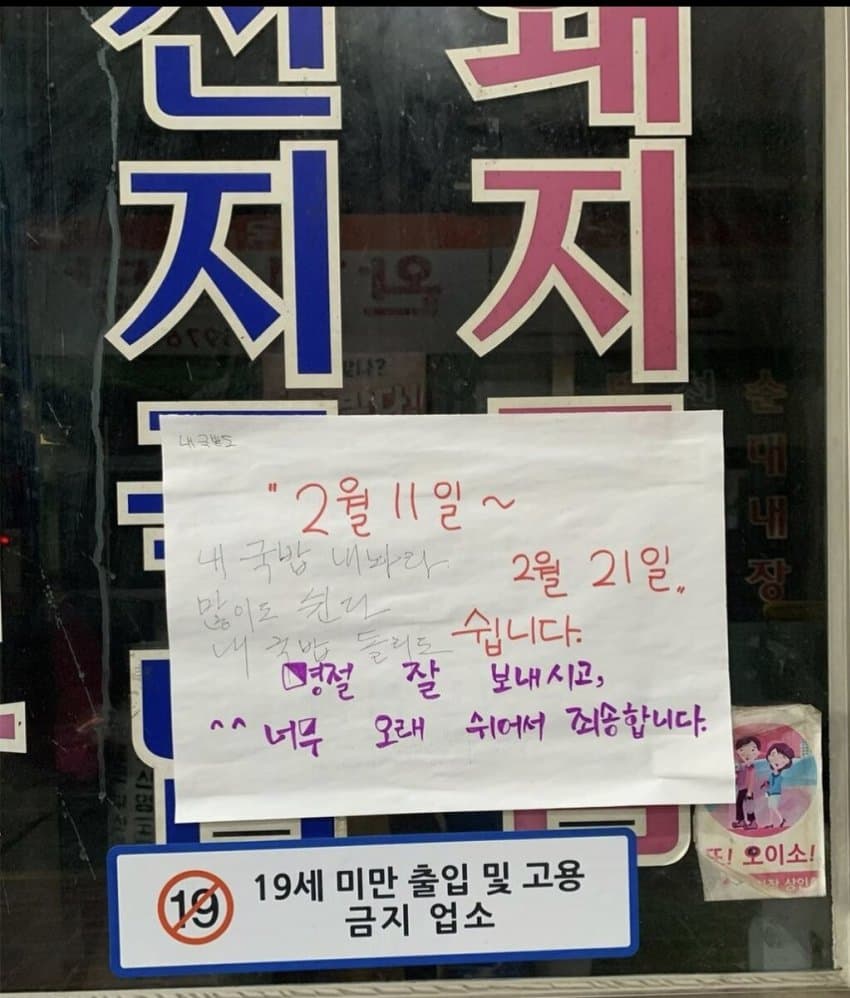 선 돼
지 지
순대내장
내 국밥도
"2월 11일 ~
2월 21일"
쉽니다.
내 국밥 내놔라
많이도 쉰다
내 국밥 돌리도
명절 잘 보내시고,
^^ 너무 오래 쉬어서 죄송합니다.
또! 오이소!
19 19세 미만 출입 및 고용
금지 업소